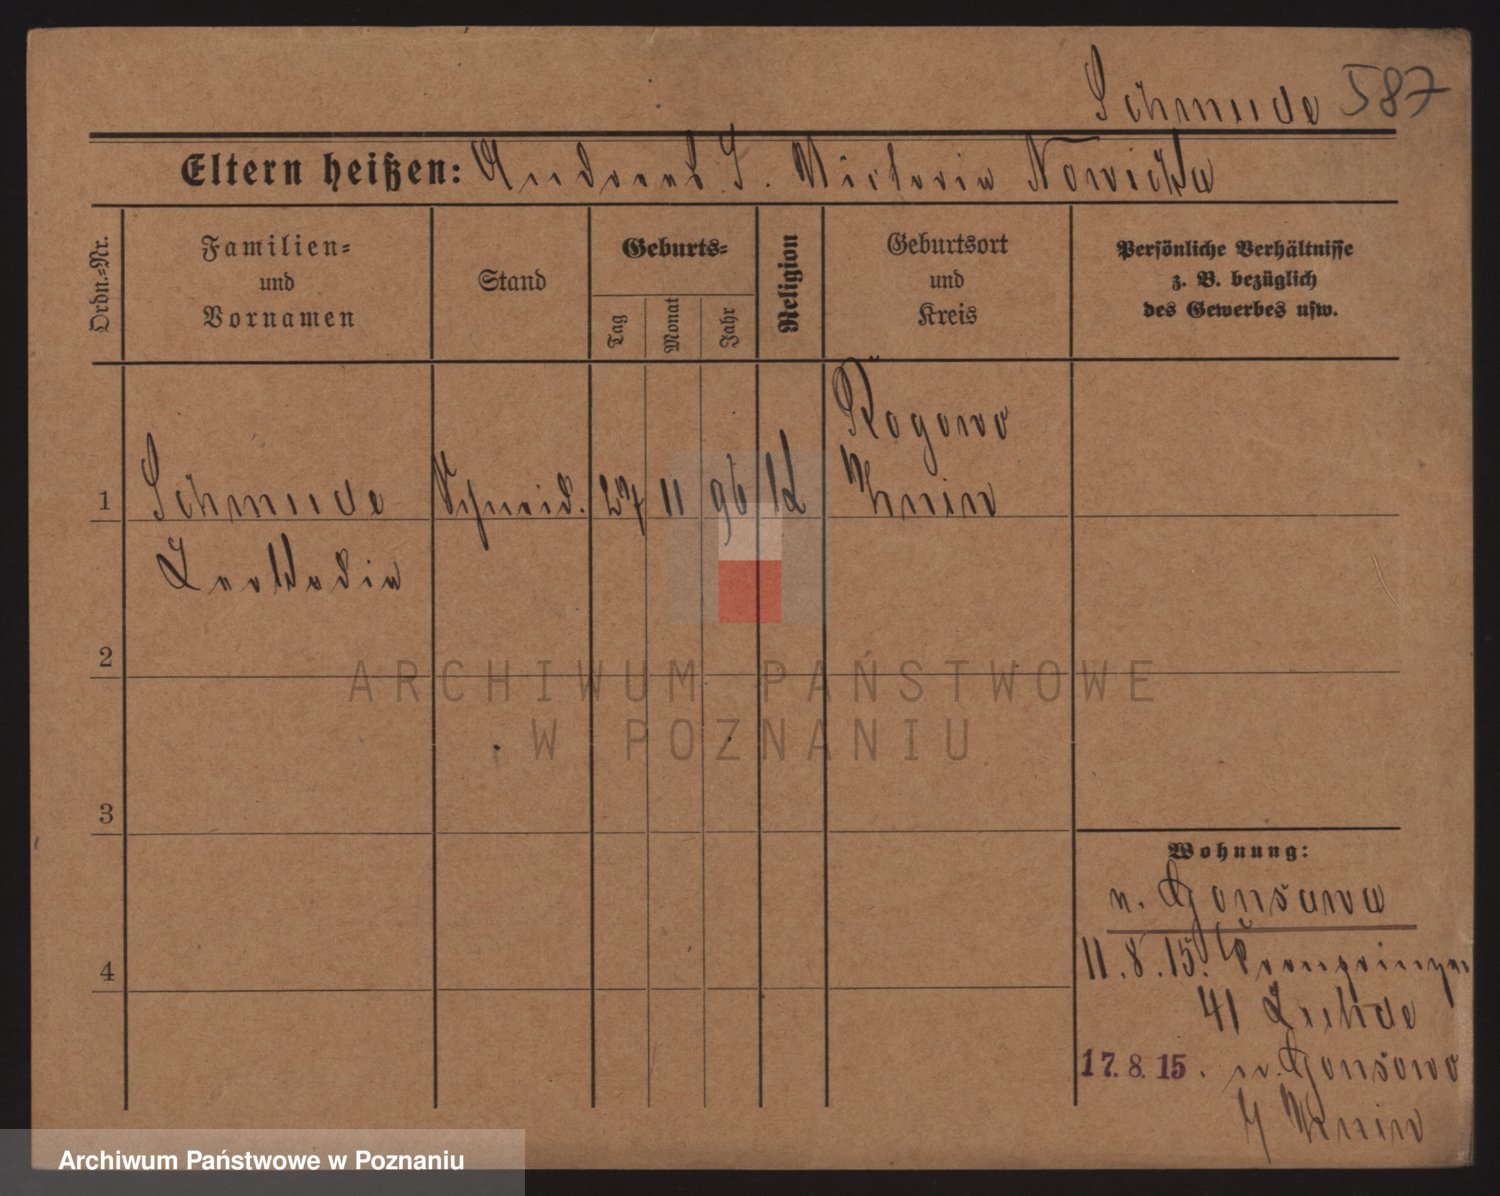 Schmude 587
Eltern heißen: Andreas J. Victoria Nowicka
Ordn.-Nr.
Familien-
und
Vornamen
Stand
Geburts-
Tag
Monat
Jahr
Religion
Geburtsort
und
Kreis
Persönliche Verhältnisse
z. B. bezüglich
des Gewerbes usw.
Rogowo
1 Schmude Schneid. 27 11 96 k Znin
Leokadia
2
3
4
ARCHIWUM PAŃSTWOWE
W POZNANIU
Wohnung:
n. Gonsawa
11.8.15. Kronprinzen
41
17.8.15. n. Gonsawa
Znin
Archiwum Państwowe w Poznaniu